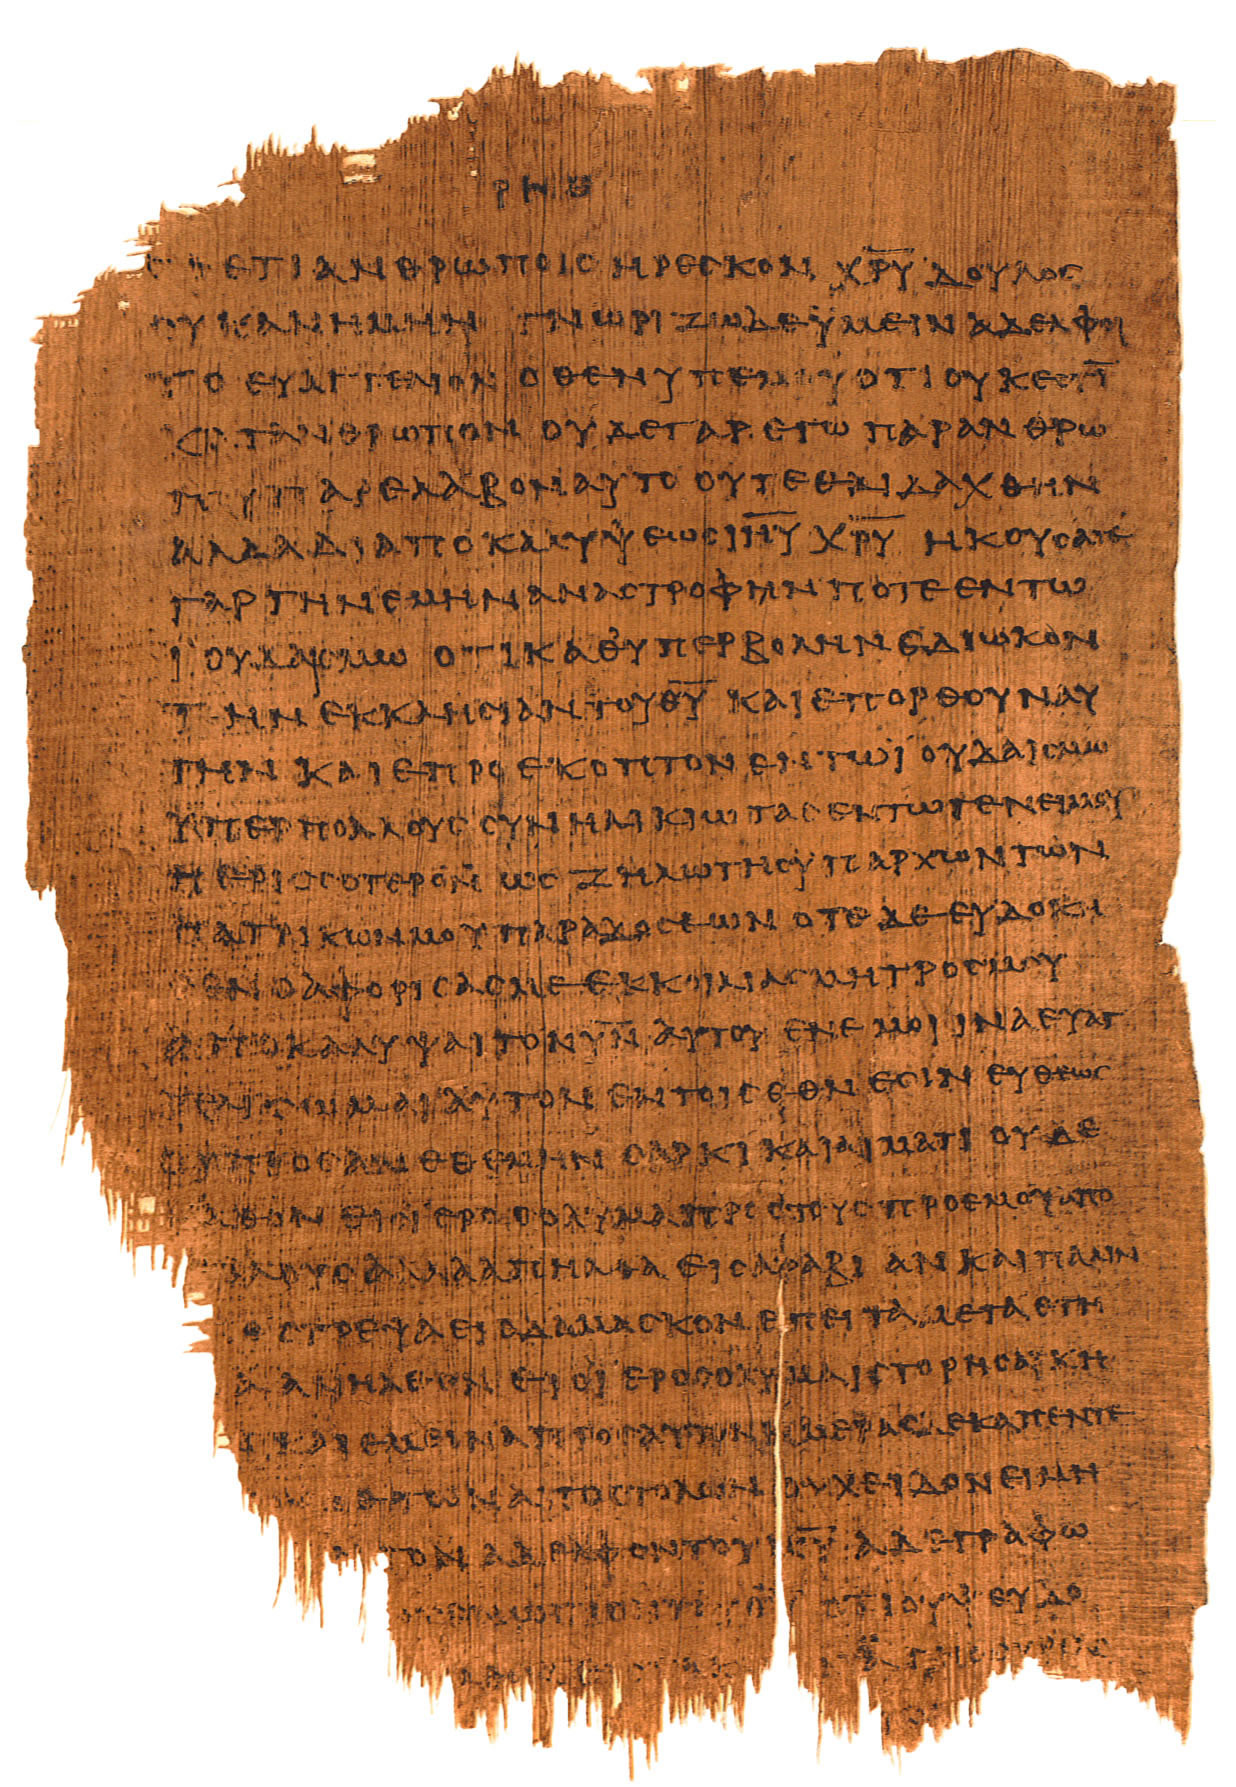 ΡΝΘ
ΕΤΙ ΑΝΘΡΩΠΟΙΣ ΗΡΕΣΚΟΝ Χ̅Ρ̅Υ̅ ΔΟΥΛΟΣ
ΟΥΚ ΑΝ ΗΜΗΝ ΓΝΩΡΙΖΩ ΔΕ ΫΜΕΙΝ ΑΔΕΛΦΟΙ
ΤΟ ΕΥΑΓΓΕΛΙΟΝ ΟΤΙ ΟΥΚ ΕΣΤΙ̅
ΚΑΤ ΑΝΘΡΩΠΟΝ ΟΥΔΕ ΓΑΡ ΕΓΩ ΠΑΡ ΑΝΘΡΩ
ΠΟΥ ΠΑΡΕΛΑΒΟΝ ΑΥΤΟ ΟΥΤΕ ΕΔΙΔΑΧΘΗΝ
ΑΛΛΑ ΔΙ ΑΠΟΚΑΛΥΨΕΩΣ Ι̅Η̅Υ̅ Χ̅Ρ̅Υ̅ ΗΚΟΥΣΑΤΕ
ΓΑΡ ΤΗΝ ΕΜΗΝ ΑΝΑΣΤΡΟΦΗΝ ΠΟΤΕ ΕΝ ΤΩ
ΪΟΥΔΑΙΣΜΩ ΟΤΙ ΚΑΘ ΥΠΕΡΒΟΛΗΝ ΕΔΙΩΚΟΝ
ΤΗΝ ΕΚΚΛΗΣΙΑΝ ΤΟΥ Θ̅Υ̅ ΚΑΙ ΕΠΟΡΘΟΥΝ ΑΥ
ΤΗΝ ΚΑΙ ΕΠΡΟΕΚΟΠΤΟΝ ΕΝ ΤΩ ΪΟΥΔΑΙΣΜΩ
ΫΠΕΡ ΠΟΛΛΟΥΣ ΣΥΝΗΛΙΚΙΩΤΑΣ ΕΝ ΤΩ ΓΕΝΕΙ ΜΟΥ
ΠΕΡΙΣΣΟΤΕΡΟΝ ΩΣ ΖΗΛΩΤΗΣ ΫΠΑΡΧΩΝ ΤΩΝ
ΠΑΤΡΙΚΩΝ ΜΟΥ ΠΑΡΑΔΟΣΕΩΝ ΟΤΕ ΔΕ ΕΥΔΟΚΗ
ΣΕΝ Ο ΑΦΟΡΙΣΑΣ ΜΕ ΕΚ ΚΟΙΛΙΑΣ ΜΗΤΡΟΣ ΜΟΥ
ΑΠΟΚΑΛΥΨΑΙ ΤΟΝ Υ̅Ν̅ ΑΥΤΟΥ ΕΝ ΕΜΟΙ ΙΝΑ ΕΥΑΓ
ΑΥΤΟΝ ΕΝ ΤΟΙΣ ΕΘΝΕΣΙΝ ΕΥΘΕΩΣ
ΣΑΡΚΙ ΚΑΙ ΑΙΜΑΤΙ ΟΥΔΕ
ΕΙΣ ΪΕΡΟΣΟΛΥΜΑ ΠΡΟΣ ΤΟΥΣ ΠΡΟ ΕΜΟΥ ΑΠΟ
ΑΛΛΑ ΑΠΗΛΘΑ ΕΙΣ ΑΡΑΒΙΑΝ ΚΑΙ ΠΑΛΙΝ
ΣΤΡΕΨΑ ΕΙΣ ΔΑΜΑΣΚΟΝ ΕΠΕΙΤΑ ΜΕΤΑ ΕΤΗ
ΑΝΗΛΘΟΝ ΕΙΣ ΪΕΡΟΣΟΛΥΜΑ ΙΣΤΟΡΗΣΑΙ ΚΗ
ΚΑΙ ΕΜΕΙΝΑ ΠΡΟΣ ΑΥΤΟΝ ΗΜΕΡΑΣ ΔΕΚΑΠΕΝΤΕ
ΤΩΝ ΑΠΟΣΤΟΛΩΝ ΟΥΧ ΕΙΔΟΝ ΕΙ ΜΗ
ΤΟΝ ΑΔΕΛΦΟΝ ΤΟΥ Α ΔΕ ΓΡΑΦΩ
ΟΤΙ ΟΥ ΨΕΥΔΟ